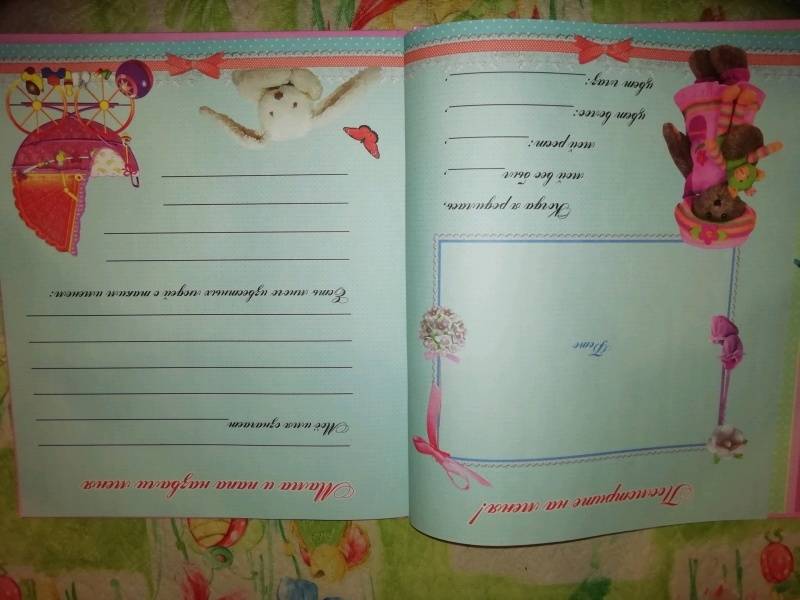 Посмотрите на меня!
Фото
Когда я родилась,
мой вес был __________,
мой рост: __________,
цвет волос: __________,
цвет глаз: __________.
Мама и папа назвали меня
Моё имя означает
Есть много известных людей с таким именем: